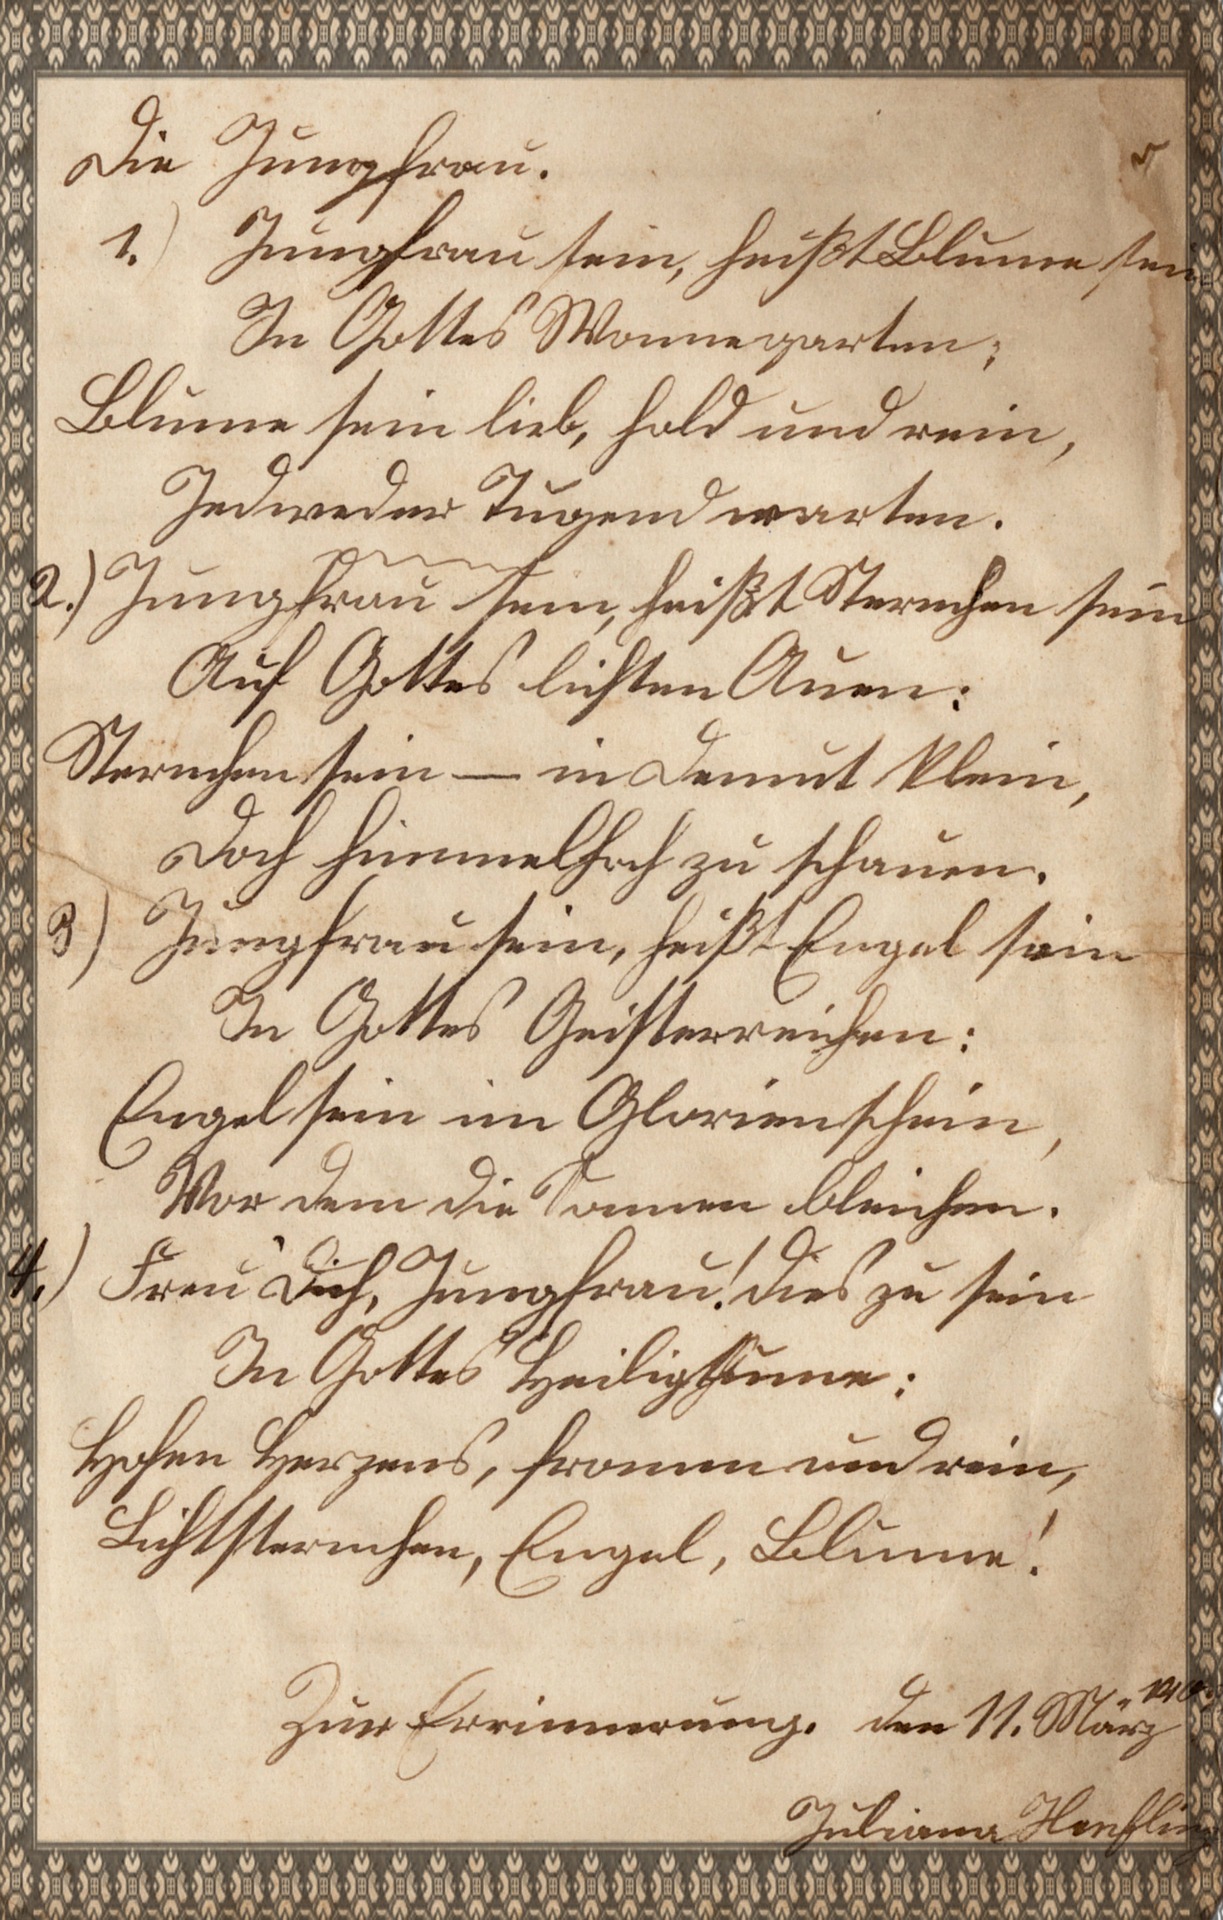 Die Jungfrau.
1.) Jungfrau sein, heißt Blume sein
In Gottes Wonnegarten;
Blume sein lieb, hold und rein,
Jedweder Tugend warten.
2.) Jungfrau sein, heißt Sternchen sein
Auf Gottes lichten Auen:
Sternchen sein — in Demut klein,
Doch himmelhoch zu schauen.
3) Jungfrau sein, heißt Engel sein
In Gottes Geisterreichen:
Engel sein im Glorienschein,
Vor dem die Sonnen bleichen.
4.) Freu' Dich, Jungfrau! dies zu sein
In Gottes Heiligthume:
Hohen Herzens, fromm und rein,
Lichtsternchen, Engel, Blume!
Zur Errinnerung. den 11. März
Juliana